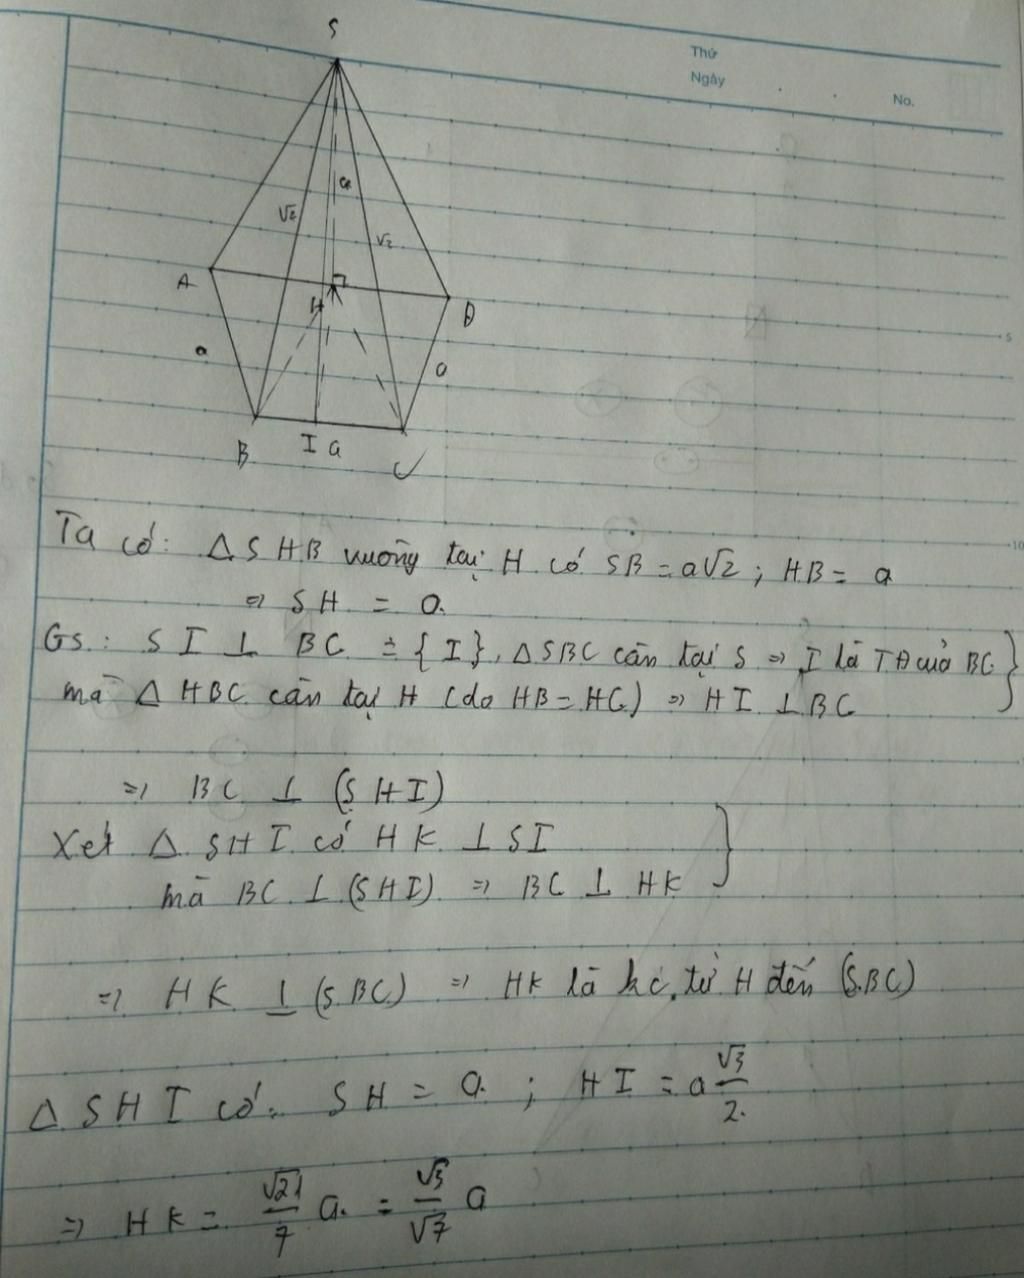 Thứ
Ngày
No.
S
a
√2
√2
A
H
D
a
a
B
I
a
C
5
10
Ta có: Δ SHB vuông tại H có SB = a√2 ; HB = a
=> SH = a.
Gs: SI ⊥ BC = {I}, Δ SBC cân tại S => I là TĐ của BC }
mà Δ HBC cân tại H (do HB = HC) => HI ⊥ BC
=> BC ⊥ (SHI)
Xét Δ SHI có HK ⊥ SI }
mà BC ⊥ (SHI) => BC ⊥ HK
=> HK ⊥ (SBC) => HK là k/c từ H đến (SBC)
Δ SHI có: SH = a ; HI = a √3/2
=> HK = √21/7 a = √3/√7 a